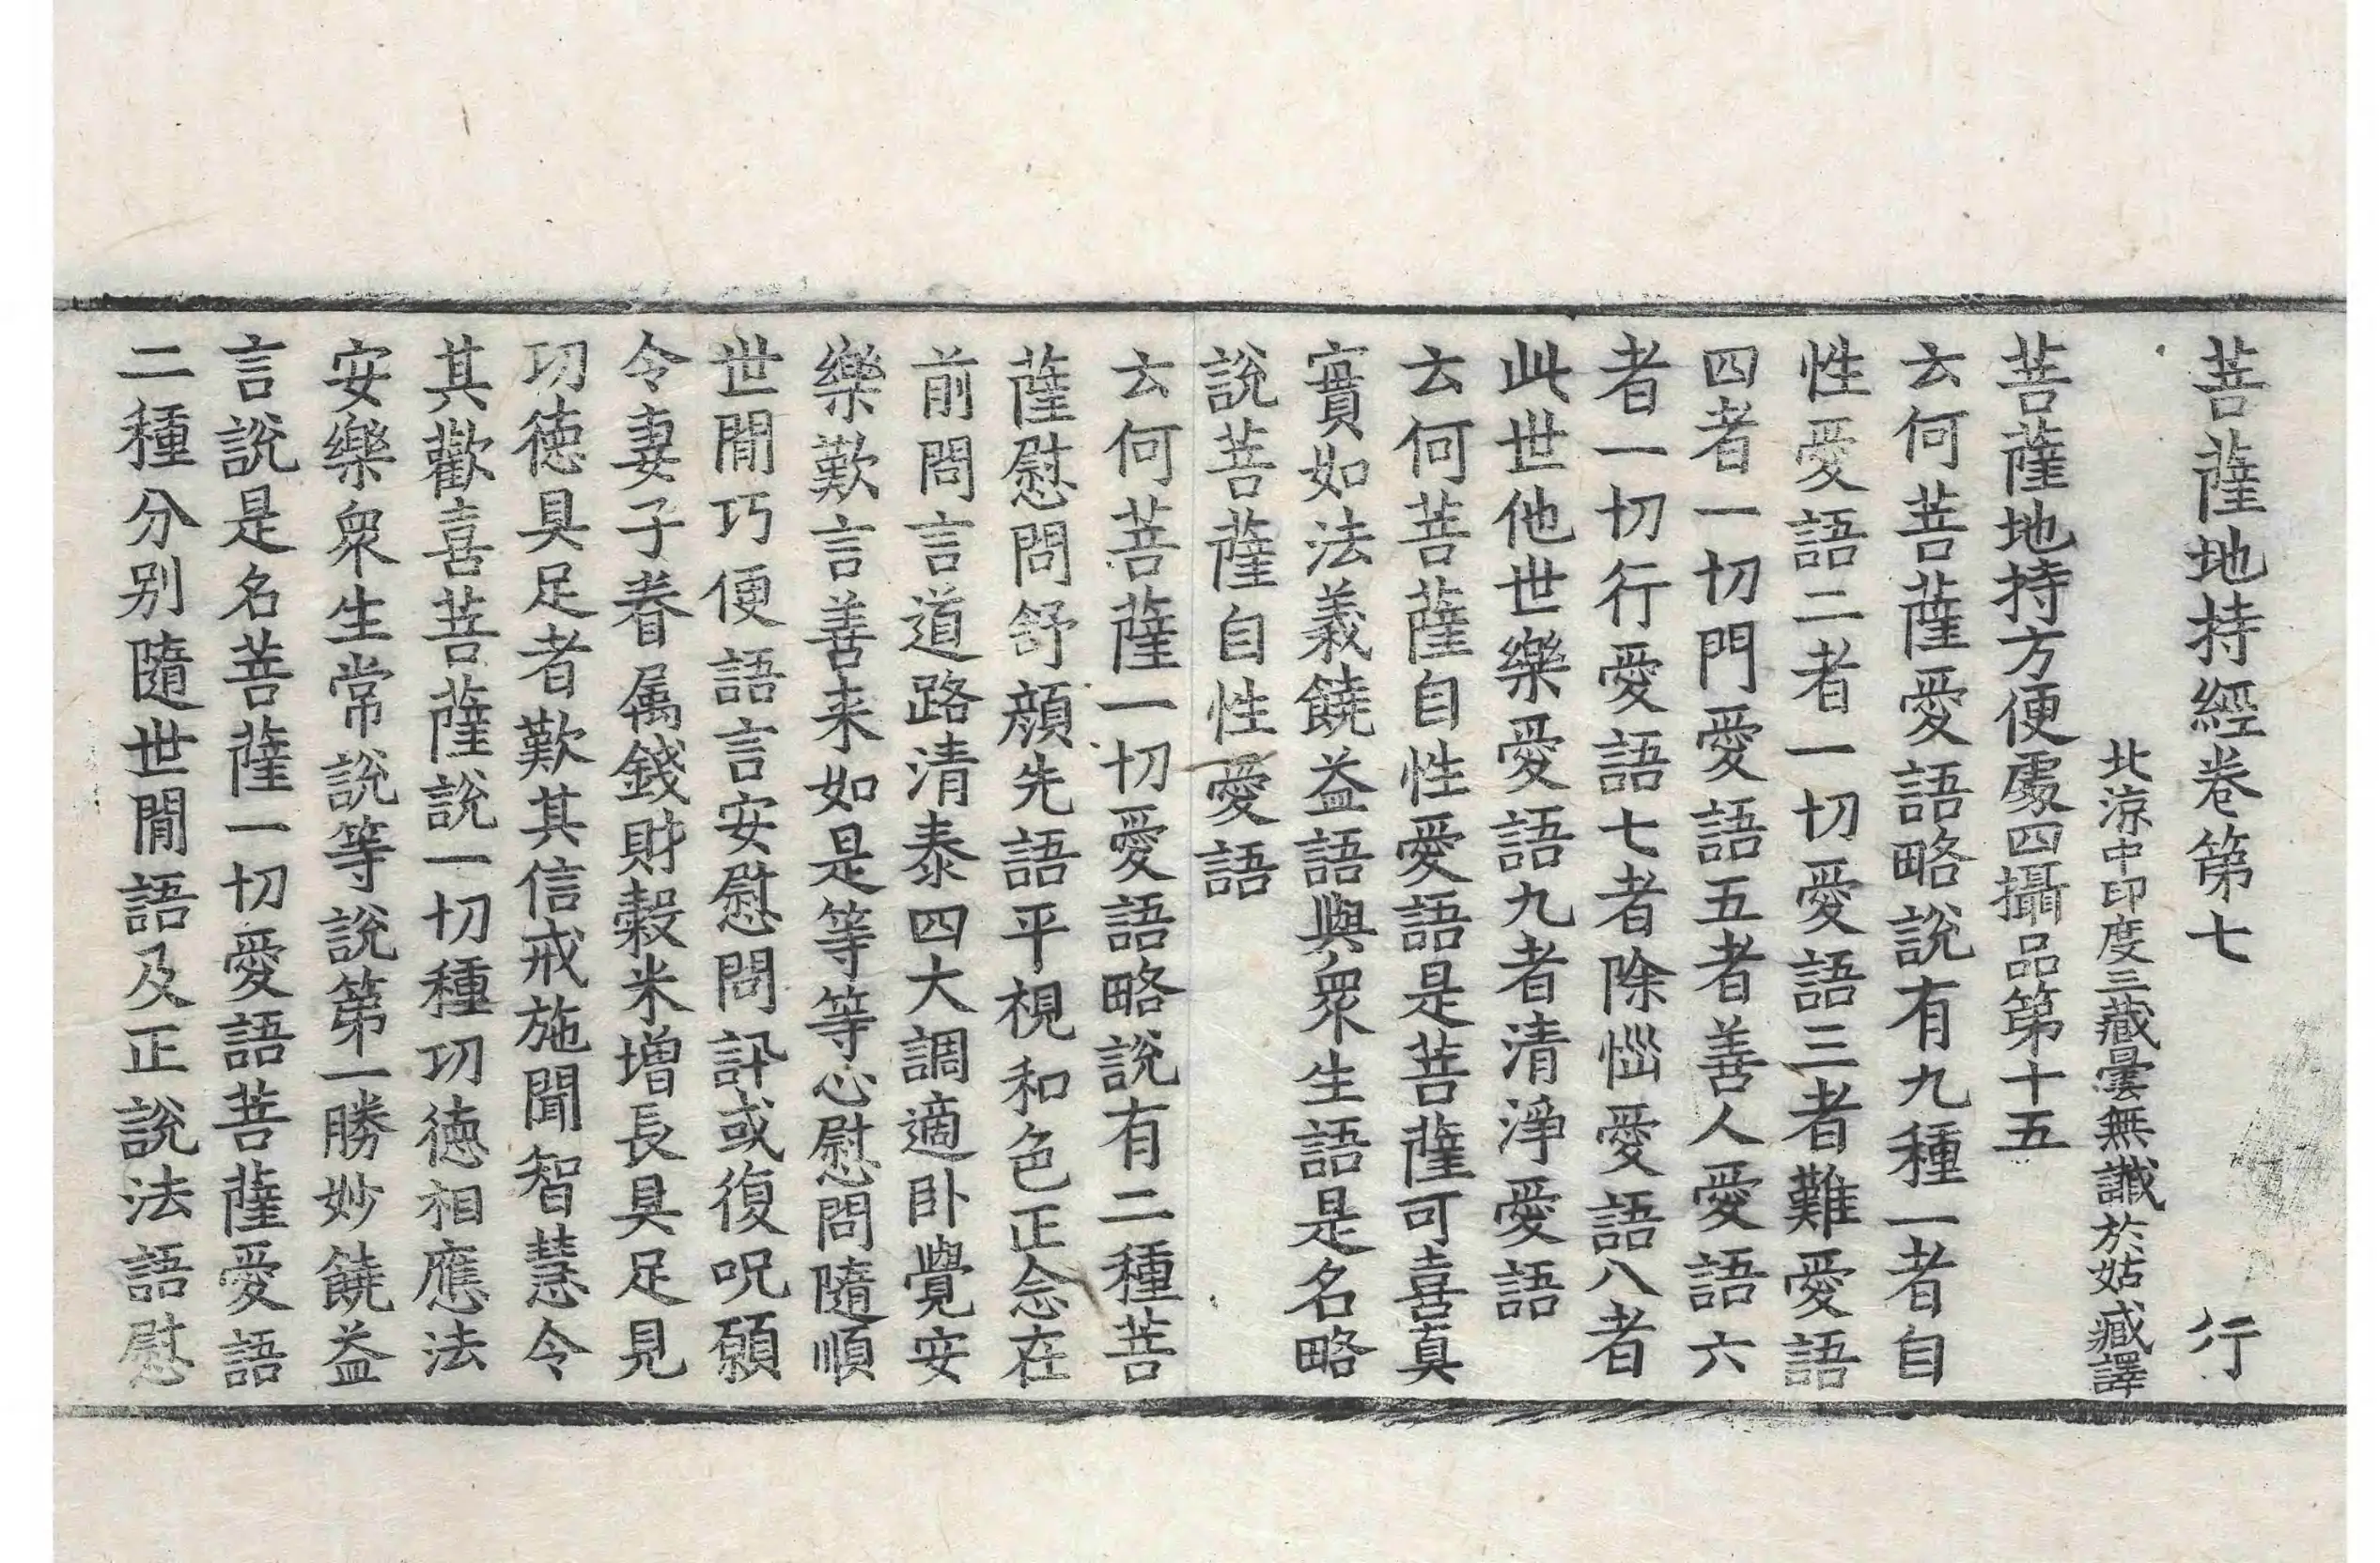 菩薩地持經卷第七 行
北涼中印度三藏曇無讖於姑臧譯
菩薩地持方便處四攝品第十五
云何菩薩愛語略說有九種一者自
性愛語二者一切愛語三者難愛語
四者一切門愛語五者善人愛語六
者一切行愛語七者除惱愛語八者
此世他世樂愛語九者清淨愛語
云何菩薩自性愛語是菩薩可喜真
實如法義饒益語與衆生語是名略
說菩薩自性愛語
云何菩薩一切愛語略說有二種菩
薩慰問舒顔先語平視和色正念在
前問言道路清泰四大調適卧覺安
樂歎言善来如是等等心慰問隨順
世閒巧便語言安慰問訊或復呪願
令妻子眷属錢財穀米增長具足見
功德具足者歎其信戒施聞智慧令
其歡喜菩薩說一切種功德相應法
安樂衆生常說等說第一勝妙饒益
言說是名菩薩一切愛語菩薩愛語
二種分别隨世閒語及正說法語慰